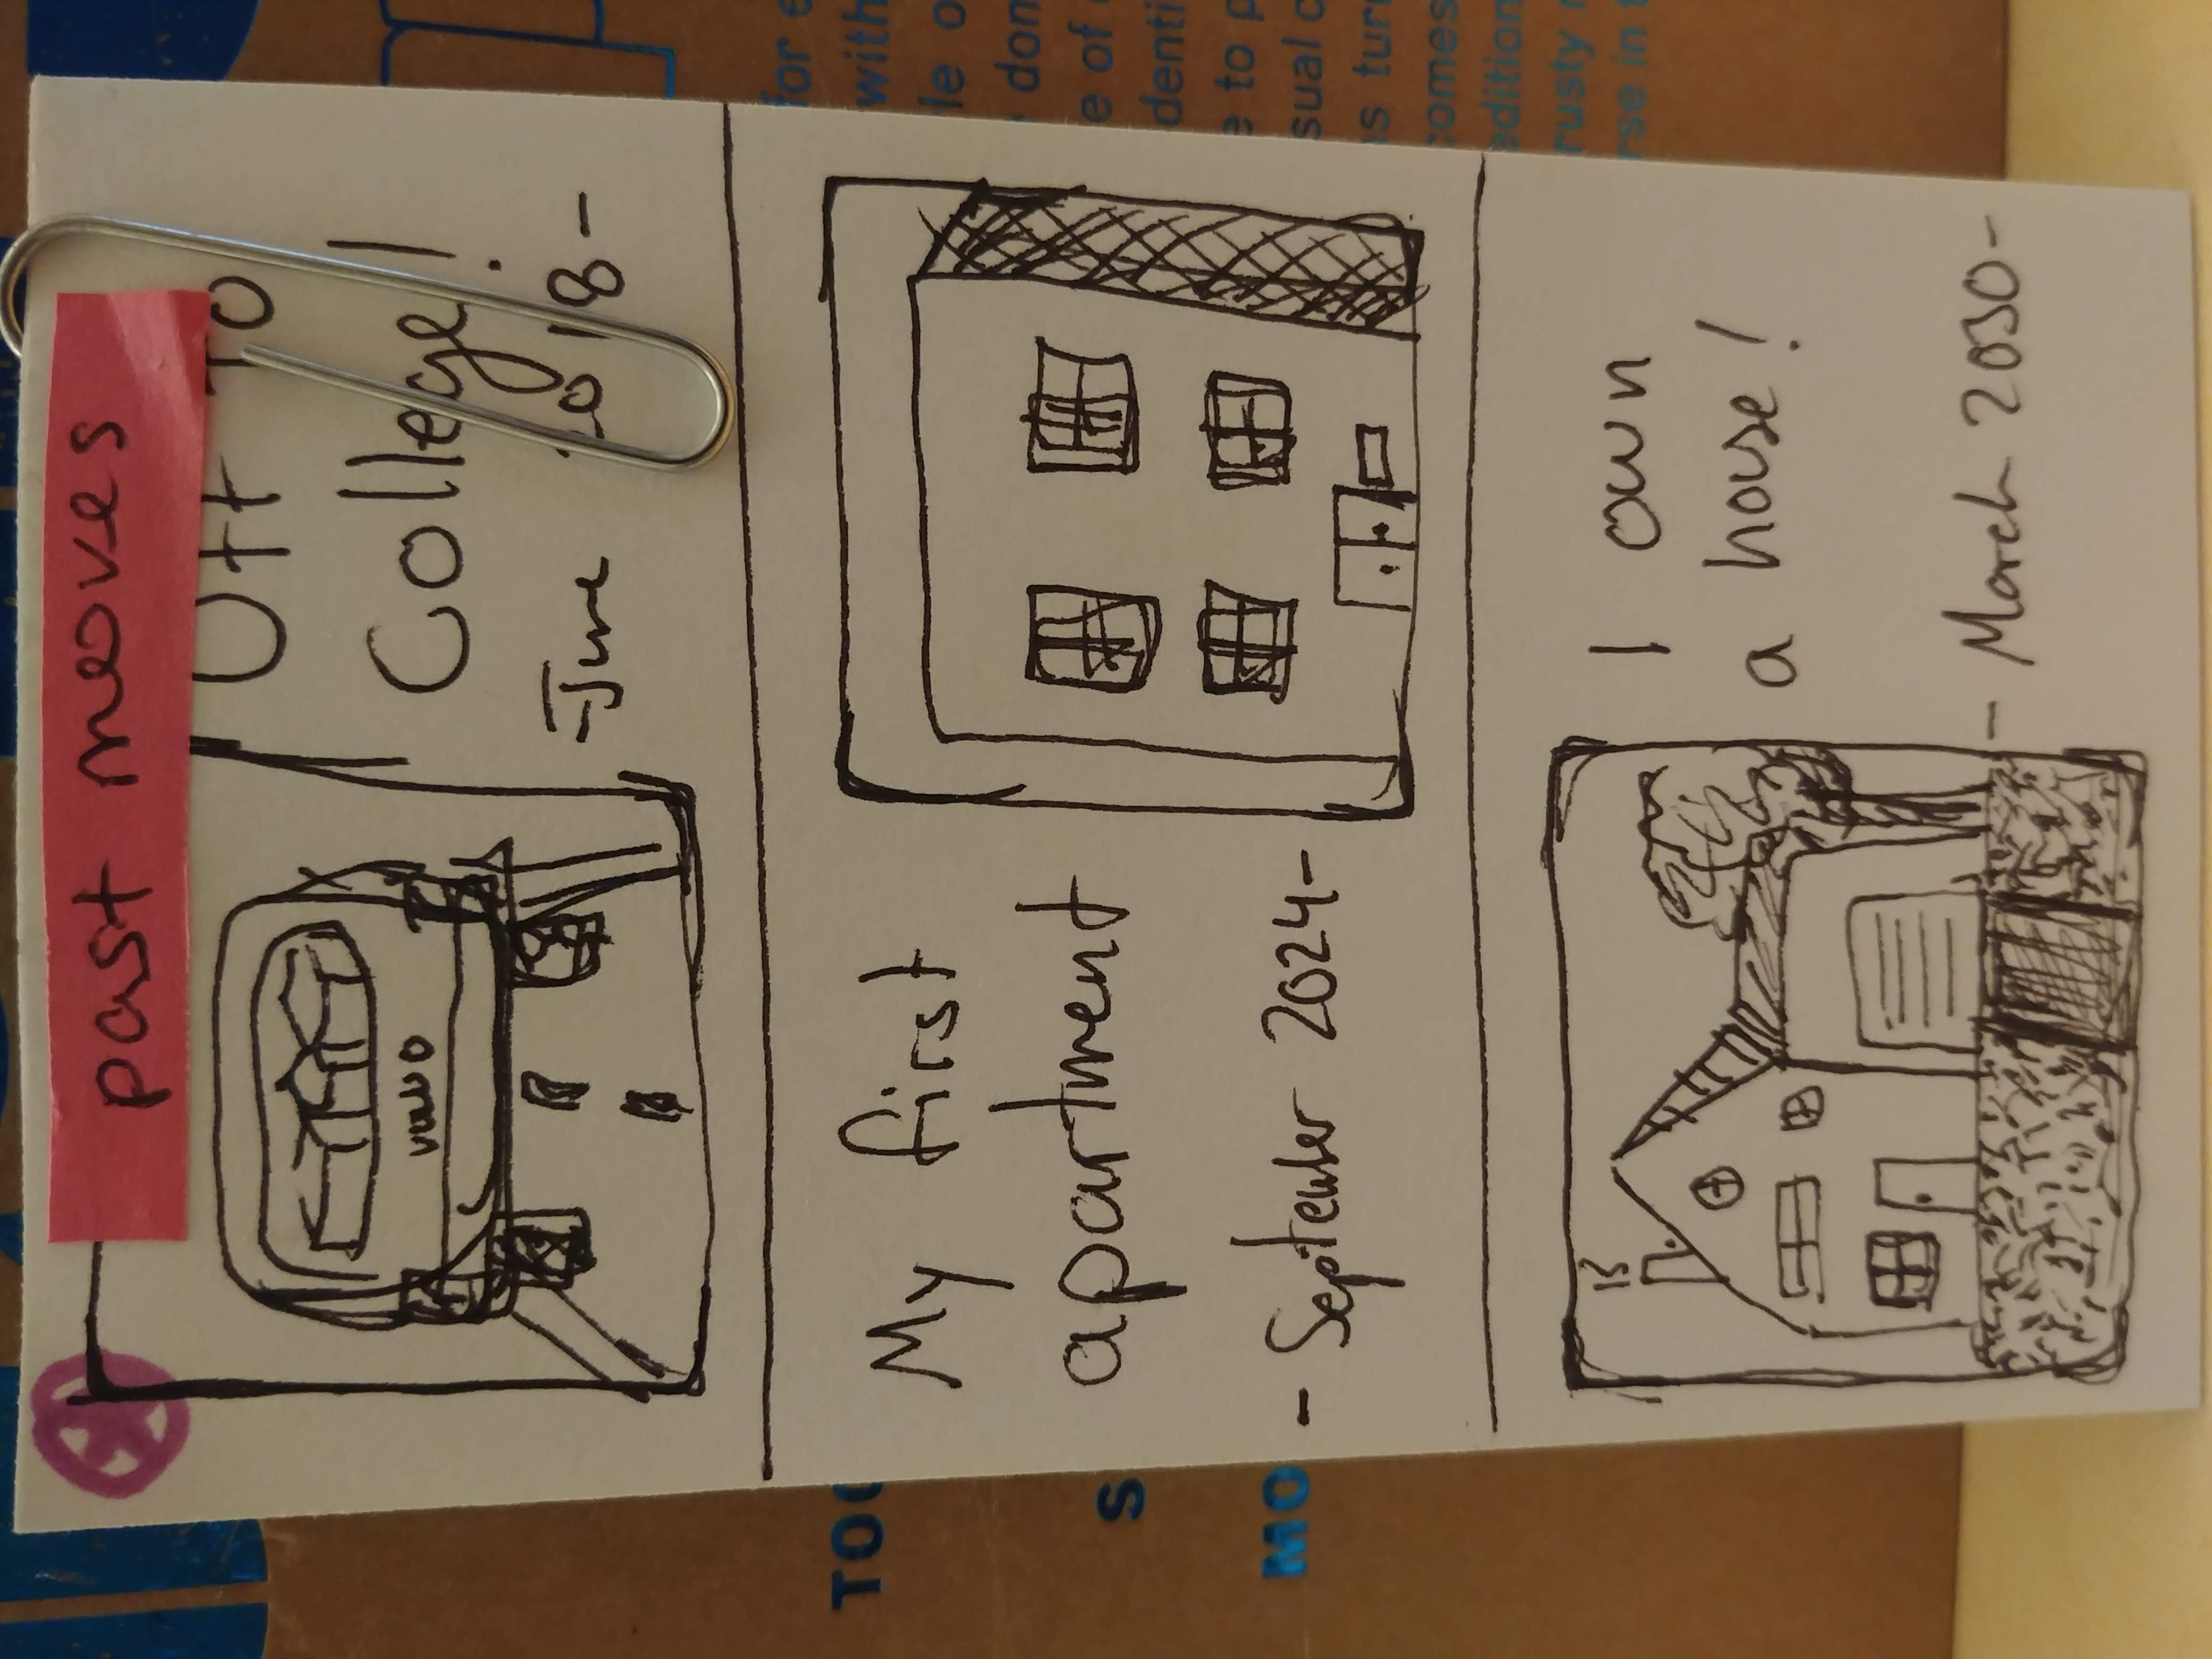 past moves
Off To
College!
VOLVO
-June 2018-
My first
apartment
- September 2024-
I own
a house!
- March 2030-
TOO
S
MO
for
with
le
dom
e of
denti
e to p
sual
s turn
comes
edition
rusty
rse in